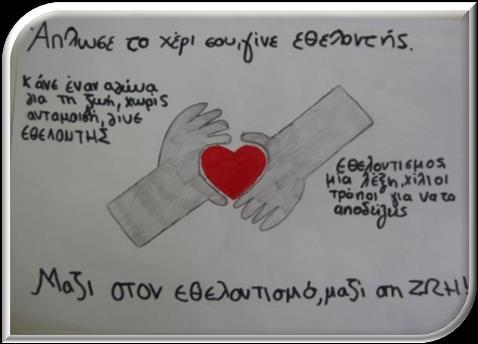 Άπλωσε το χέρι σου, γίνε εθελοντής.
Κάνε έναν αγώνα
για τη ζωή, χωρίς
ανταμοιβή, γίνε
ΕΘΕΛΟΝΤΗΣ
εθελοντισμος
μία λέξη, χίλιοι
τρόποι για να το
αποδείξεις
Μαζι στον εθελοντισμό, μαζι στη ΖΩΗ!